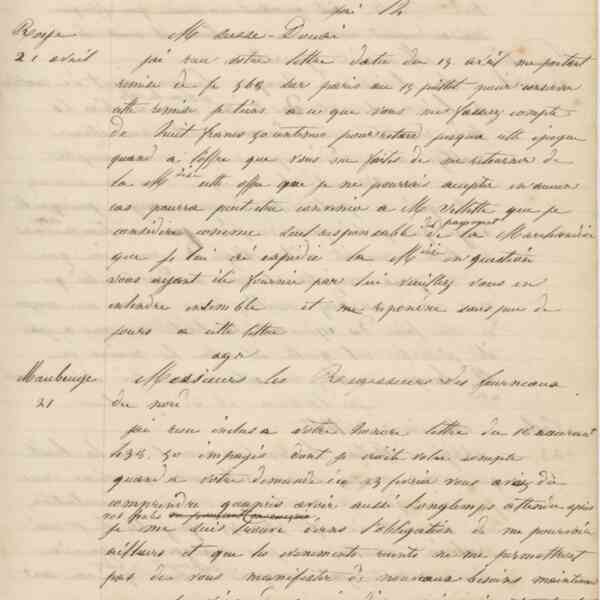 21 avril
M susse-Douai
j'ai reçu votre lettre datée du 13 avril me portant
remise de fr 363 sur paris au 15 juillet pour conserver
cette remise je tiens à ce que vous me fassiez compte
de huit francs 50 centimes pour retard jusqua cette époque
quand a l'offre que vous me faites de me retourner de
la Mdise cette offre que je ne pourrais accepter en aucun
cas pourra peut être convenir à M que je
considère comme seul responsable du payement de la Marchandise
que je lui ai expédié la Mdise en question
vous ayant été fournie par lui veuillez vous en
entendre ensemble et me répondre sans peu de
jours a cette lettre
agr
Maubeuge Messieurs les Régisseurs des fourneaux
21 du nord
j'ai reçu inclus a votre honoré lettre du 16 courant
50 impayés dont je crédite votre compte
quand a votre demande du 23 février vous avez dû
comprendre qu'après avoir aussi longtemps attendu après
je me suis trouvé dans l'obligation de me pourvoir
ailleurs et que les évènements récents ne me permettent
pas de vous manifester de nouveaux besoins maintenant